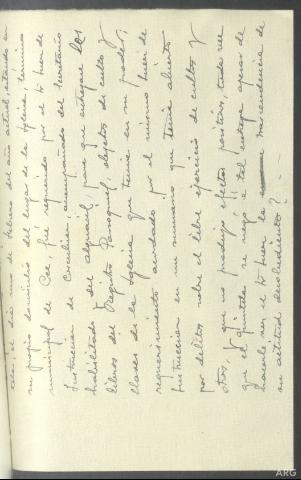 tela, el día       mes de Febrero del año actual, estando en
su propio domicilio del lugar de la Iglesia, término
municipal de Cee, fué requerido por el Sr Juez de
Instrucción de Corcubión acompañado del Secretario
habilitado y del alguacil, para que entregase los
libros del Registro Parroquial, objetos de culto y
llaves de la Iglesia que tenía en su poder,
requerimiento acordado por el mismo Juez de
Instrucción en un sumario que tenía abierto
por delitos sobre el libre ejercicio de cultos y
otros, y que no produjo efectos positivos, toda vez
que el        se negó a tal entrega apesar de
hacerle ver el Sr Juez la        trascendencia de
su actitud desobediente?
ARG